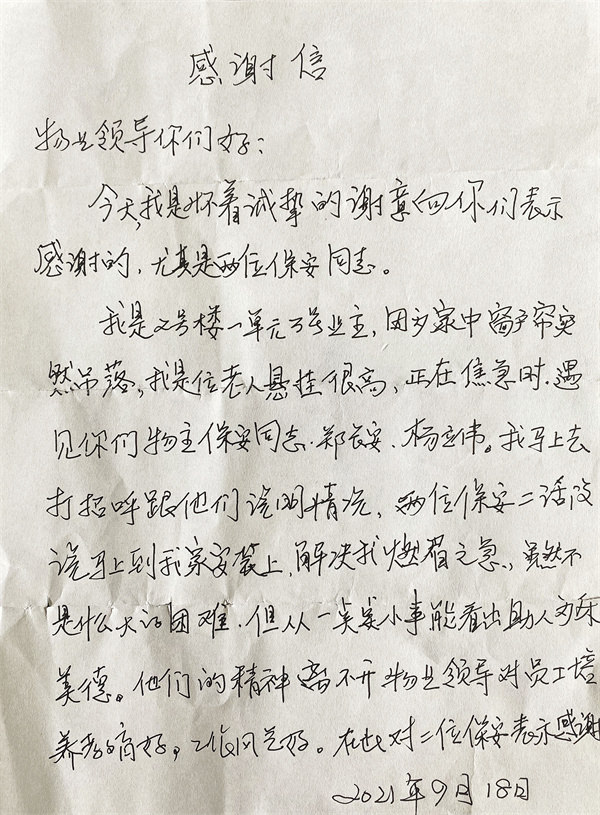 感谢信
物业领导你们好：
今天,我是怀着诚挚的谢意向你们表示
感谢的,尤其是两位保安同志。
我是2号楼一单元 业主,因 家中窗户帘突
然吊落,我是位老人悬挂很高,正在焦急时.遇
见你们物主保安同志.郑长安.杨立伟。我马上去
打招呼跟他们说明情况,两位保安二话没
说马上到我家安装上.解决我燃眉之急.,虽然不
是什么大的困难.但从一类类小事能看出助人为乐
美德。他们的精神离不开物业领导对员工培
养 好,工作风气好。在此对二位保安表示感谢
2021年9月18日